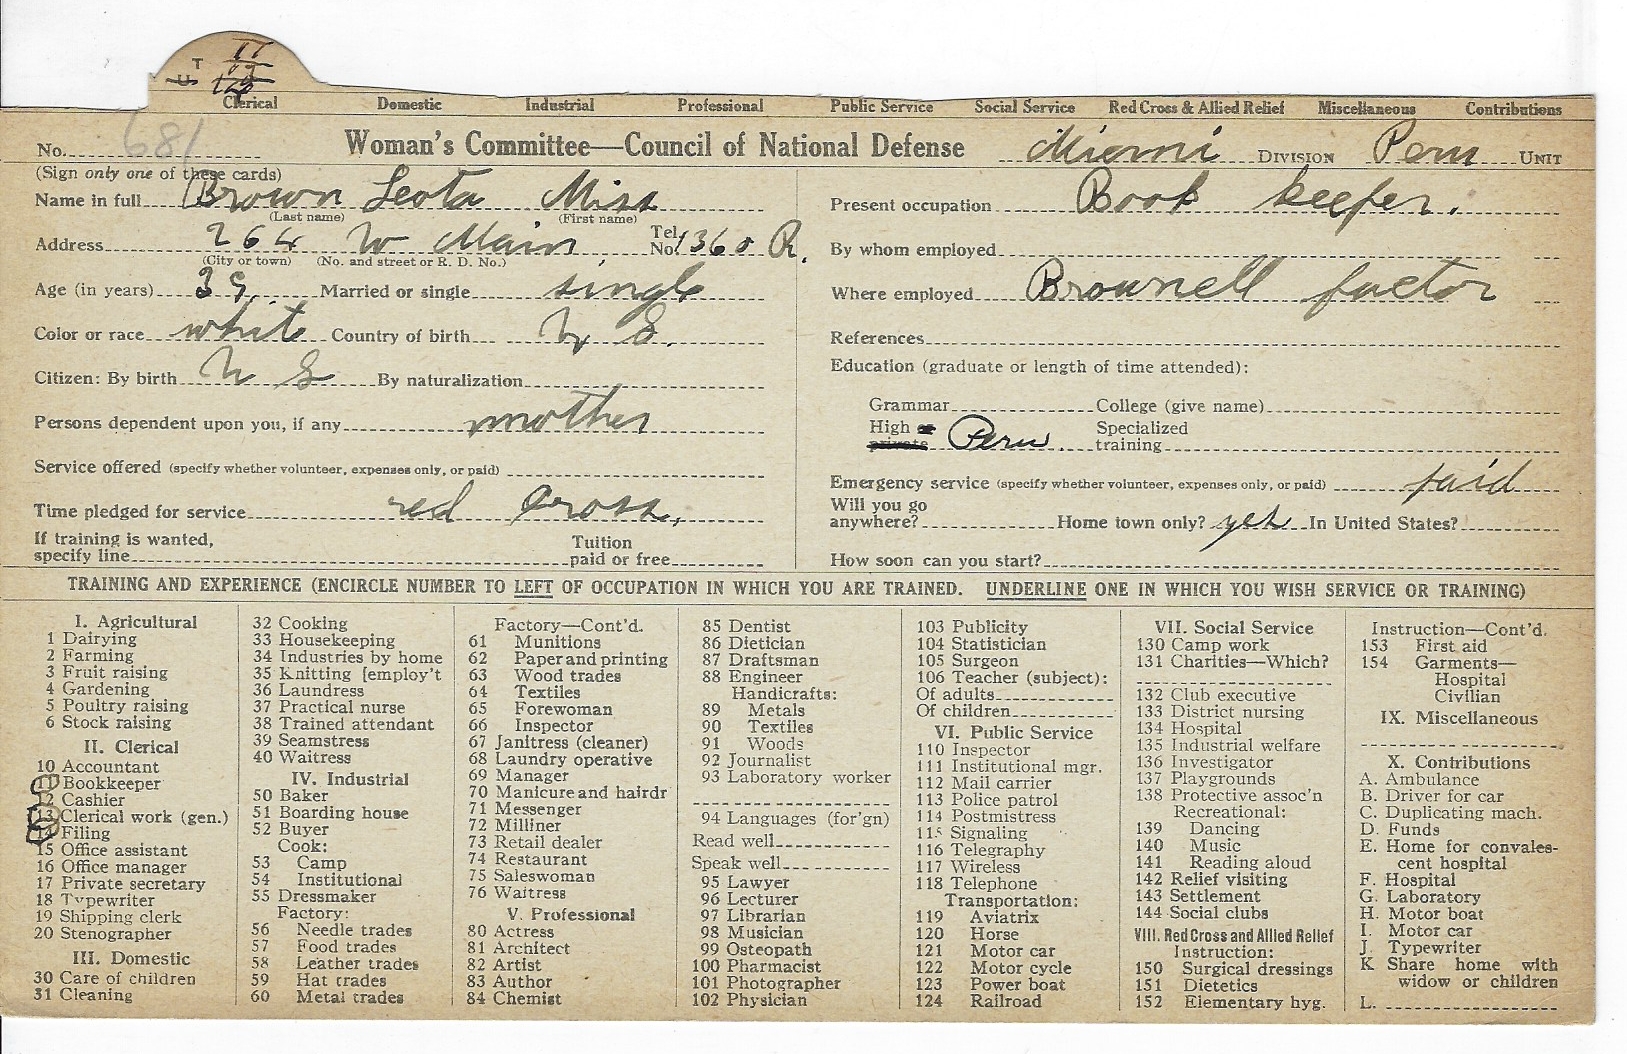 T 11
U
Clerical Domestic Industrial Professional Public Service Social Service Red Cross & Allied Relief Miscellaneous Contributions
No. 681 Woman's Committee—Council of National Defense Miami DIVISION Peru UNIT
(Sign only one of these cards)
Name in full Brown Leota Miss
(Last name) (First name)
Address 264 W Main Tel. No. 1360 R.
(City or town) (No. and street or R. D. No.)
Age (in years) 39 Married or single single
Color or race white Country of birth U S.
Citizen: By birth U S By naturalization
Persons dependent upon you, if any mother
Service offered (specify whether volunteer, expenses only, or paid)
Time pledged for service red Cross.
If training is wanted,
specify line Tuition paid or free
Present occupation Book keeper.
By whom employed
Where employed Brownell factor
References
Education (graduate or length of time attended):
Grammar College (give name)
High or private Peru. Specialized training
Emergency service (specify whether volunteer, expenses only, or paid) paid
Will you go
anywhere? Home town only? yes In United States?
How soon can you start?
TRAINING AND EXPERIENCE (ENCIRCLE NUMBER TO LEFT OF OCCUPATION IN WHICH YOU ARE TRAINED. UNDERLINE ONE IN WHICH YOU WISH SERVICE OR TRAINING)
I. Agricultural
1 Dairying
2 Farming
3 Fruit raising
4 Gardening
5 Poultry raising
6 Stock raising
II. Clerical
10 Accountant
11 Bookkeeper
12 Cashier
13 Clerical work (gen.)
14 Filing
15 Office assistant
16 Office manager
17 Private secretary
18 Typewriter
19 Shipping clerk
20 Stenographer
III. Domestic
30 Care of children
31 Cleaning
32 Cooking
33 Housekeeping
34 Industries by home
35 Knitting [employ't
36 Laundress
37 Practical nurse
38 Trained attendant
39 Seamstress
40 Waitress
IV. Industrial
50 Baker
51 Boarding house
52 Buyer
Cook:
53 Camp
54 Institutional
55 Dressmaker
Factory:
56 Needle trades
57 Food trades
58 Leather trades
59 Hat trades
60 Metal trades
Factory—Cont'd.
61 Munitions
62 Paper and printing
63 Wood trades
64 Textiles
65 Forewoman
66 Inspector
67 Janitress (cleaner)
68 Laundry operative
69 Manager
70 Manicure and hairdr
71 Messenger
72 Milliner
73 Retail dealer
74 Restaurant
75 Saleswoman
76 Waitress
V. Professional
80 Actress
81 Architect
82 Artist
83 Author
84 Chemist
85 Dentist
86 Dietician
87 Draftsman
88 Engineer
Handicrafts:
89 Metals
90 Textiles
91 Woods
92 Journalist
93 Laboratory worker
94 Languages (for'gn)
Read well
Speak well
95 Lawyer
96 Lecturer
97 Librarian
98 Musician
99 Osteopath
100 Pharmacist
101 Photographer
102 Physician
103 Publicity
104 Statistician
105 Surgeon
106 Teacher (subject):
Of adults
Of children
VI. Public Service
110 Inspector
111 Institutional mgr.
112 Mail carrier
113 Police patrol
114 Postmistress
115 Signaling
116 Telegraphy
117 Wireless
118 Telephone
Transportation:
119 Aviatrix
120 Horse
121 Motor car
122 Motor cycle
123 Power boat
124 Railroad
VII. Social Service
130 Camp work
131 Charities—Which?
132 Club executive
133 District nursing
134 Hospital
135 Industrial welfare
136 Investigator
137 Playgrounds
138 Protective assoc'n
Recreational:
139 Dancing
140 Music
141 Reading aloud
142 Relief visiting
143 Settlement
144 Social clubs
VIII. Red Cross and Allied Relief
Instruction:
150 Surgical dressings
151 Dietetics
152 Elementary hyg.
Instruction—Cont'd.
153 First aid
154 Garments—
Hospital
Civilian
IX. Miscellaneous
X. Contributions
A. Ambulance
B. Driver for car
C. Duplicating mach.
D. Funds
E. Home for convales-
cent hospital
F. Hospital
G. Laboratory
H. Motor boat
I. Motor car
J. Typewriter
K Share home with
widow or children
L.